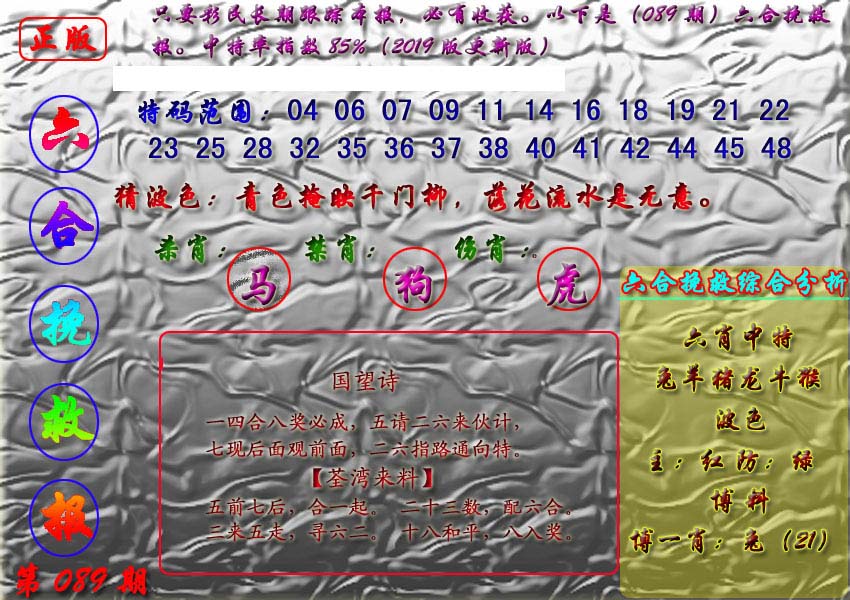 正版
只要彩民长期跟踪本报，必有收获。以下是（089期）六合挽救
报。中特率指数85%（2019版更新版）
六合挽救报
第089期
特码范围：04 06 07 09 11 14 16 18 19 21 22
23 25 28 32 35 36 37 38 40 41 42 44 45 48
猜波色：青色掩映千门柳，落花流水是无意。
杀肖：马 禁肖：狗 伤肖：虎
国望诗
一四合八奖必成，五请二六来伙计，
七现后面观前面，二六指路通向特。
【荃湾来料】
五前七后，合一起。 二十三数，配六合。
二来五走，寻六二。 十八和平，八入奖。
六合挽救综合分析
六肖中特
兔羊猪龙牛猴
波色
主：红防：绿
博料
博一肖：兔（21）